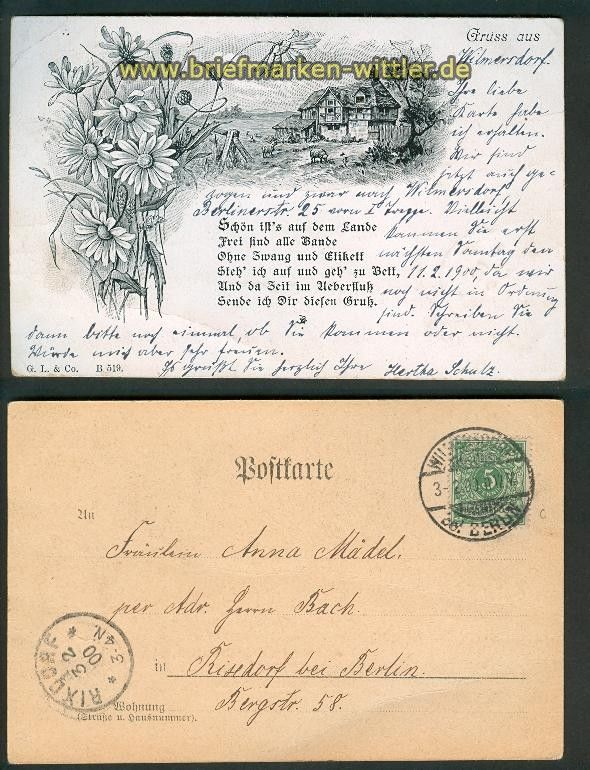 www.briefmarken-wittler.de
Gruss aus
Wilmersdorf.
Ihre liebe
Karte habe
ich erhalten.
Wir sind
jetzt auch ge-
zogen und zwar nach Wilmersdorf
Berlinerstr. 25 vorn I Treppe. Vielleicht
kommen Sie erst
nächsten Sonntag den
11.2.1900, da wir
noch nicht in Ordnung
sind. Schreiben Sie
dann bitte noch einmal, ob Sie kommen oder nicht.
Würde mich aber sehr freuen.
Es grüßt Sie herzlich Ihre Hertha Schulz.
Schön ist's auf dem Lande
Frei sind alle Bande
Ohne Zwang und Etikett
Steh' ich auf und geh' zu Bett,
Und da Zeit im Ueberfluß
Sende ich Dir diesen Gruß.
G. L. & Co. B 519.
Postkarte
An
Fräulein Anna Mädel.
per Adr. Herrn Bach.
in Rixdorf bei Berlin.
Bergstr. 58.
Wohnung
(Straße u. Hausnummer).
5
3-
BERLIN
RIXDORF
3 2
00
3-4N.
C